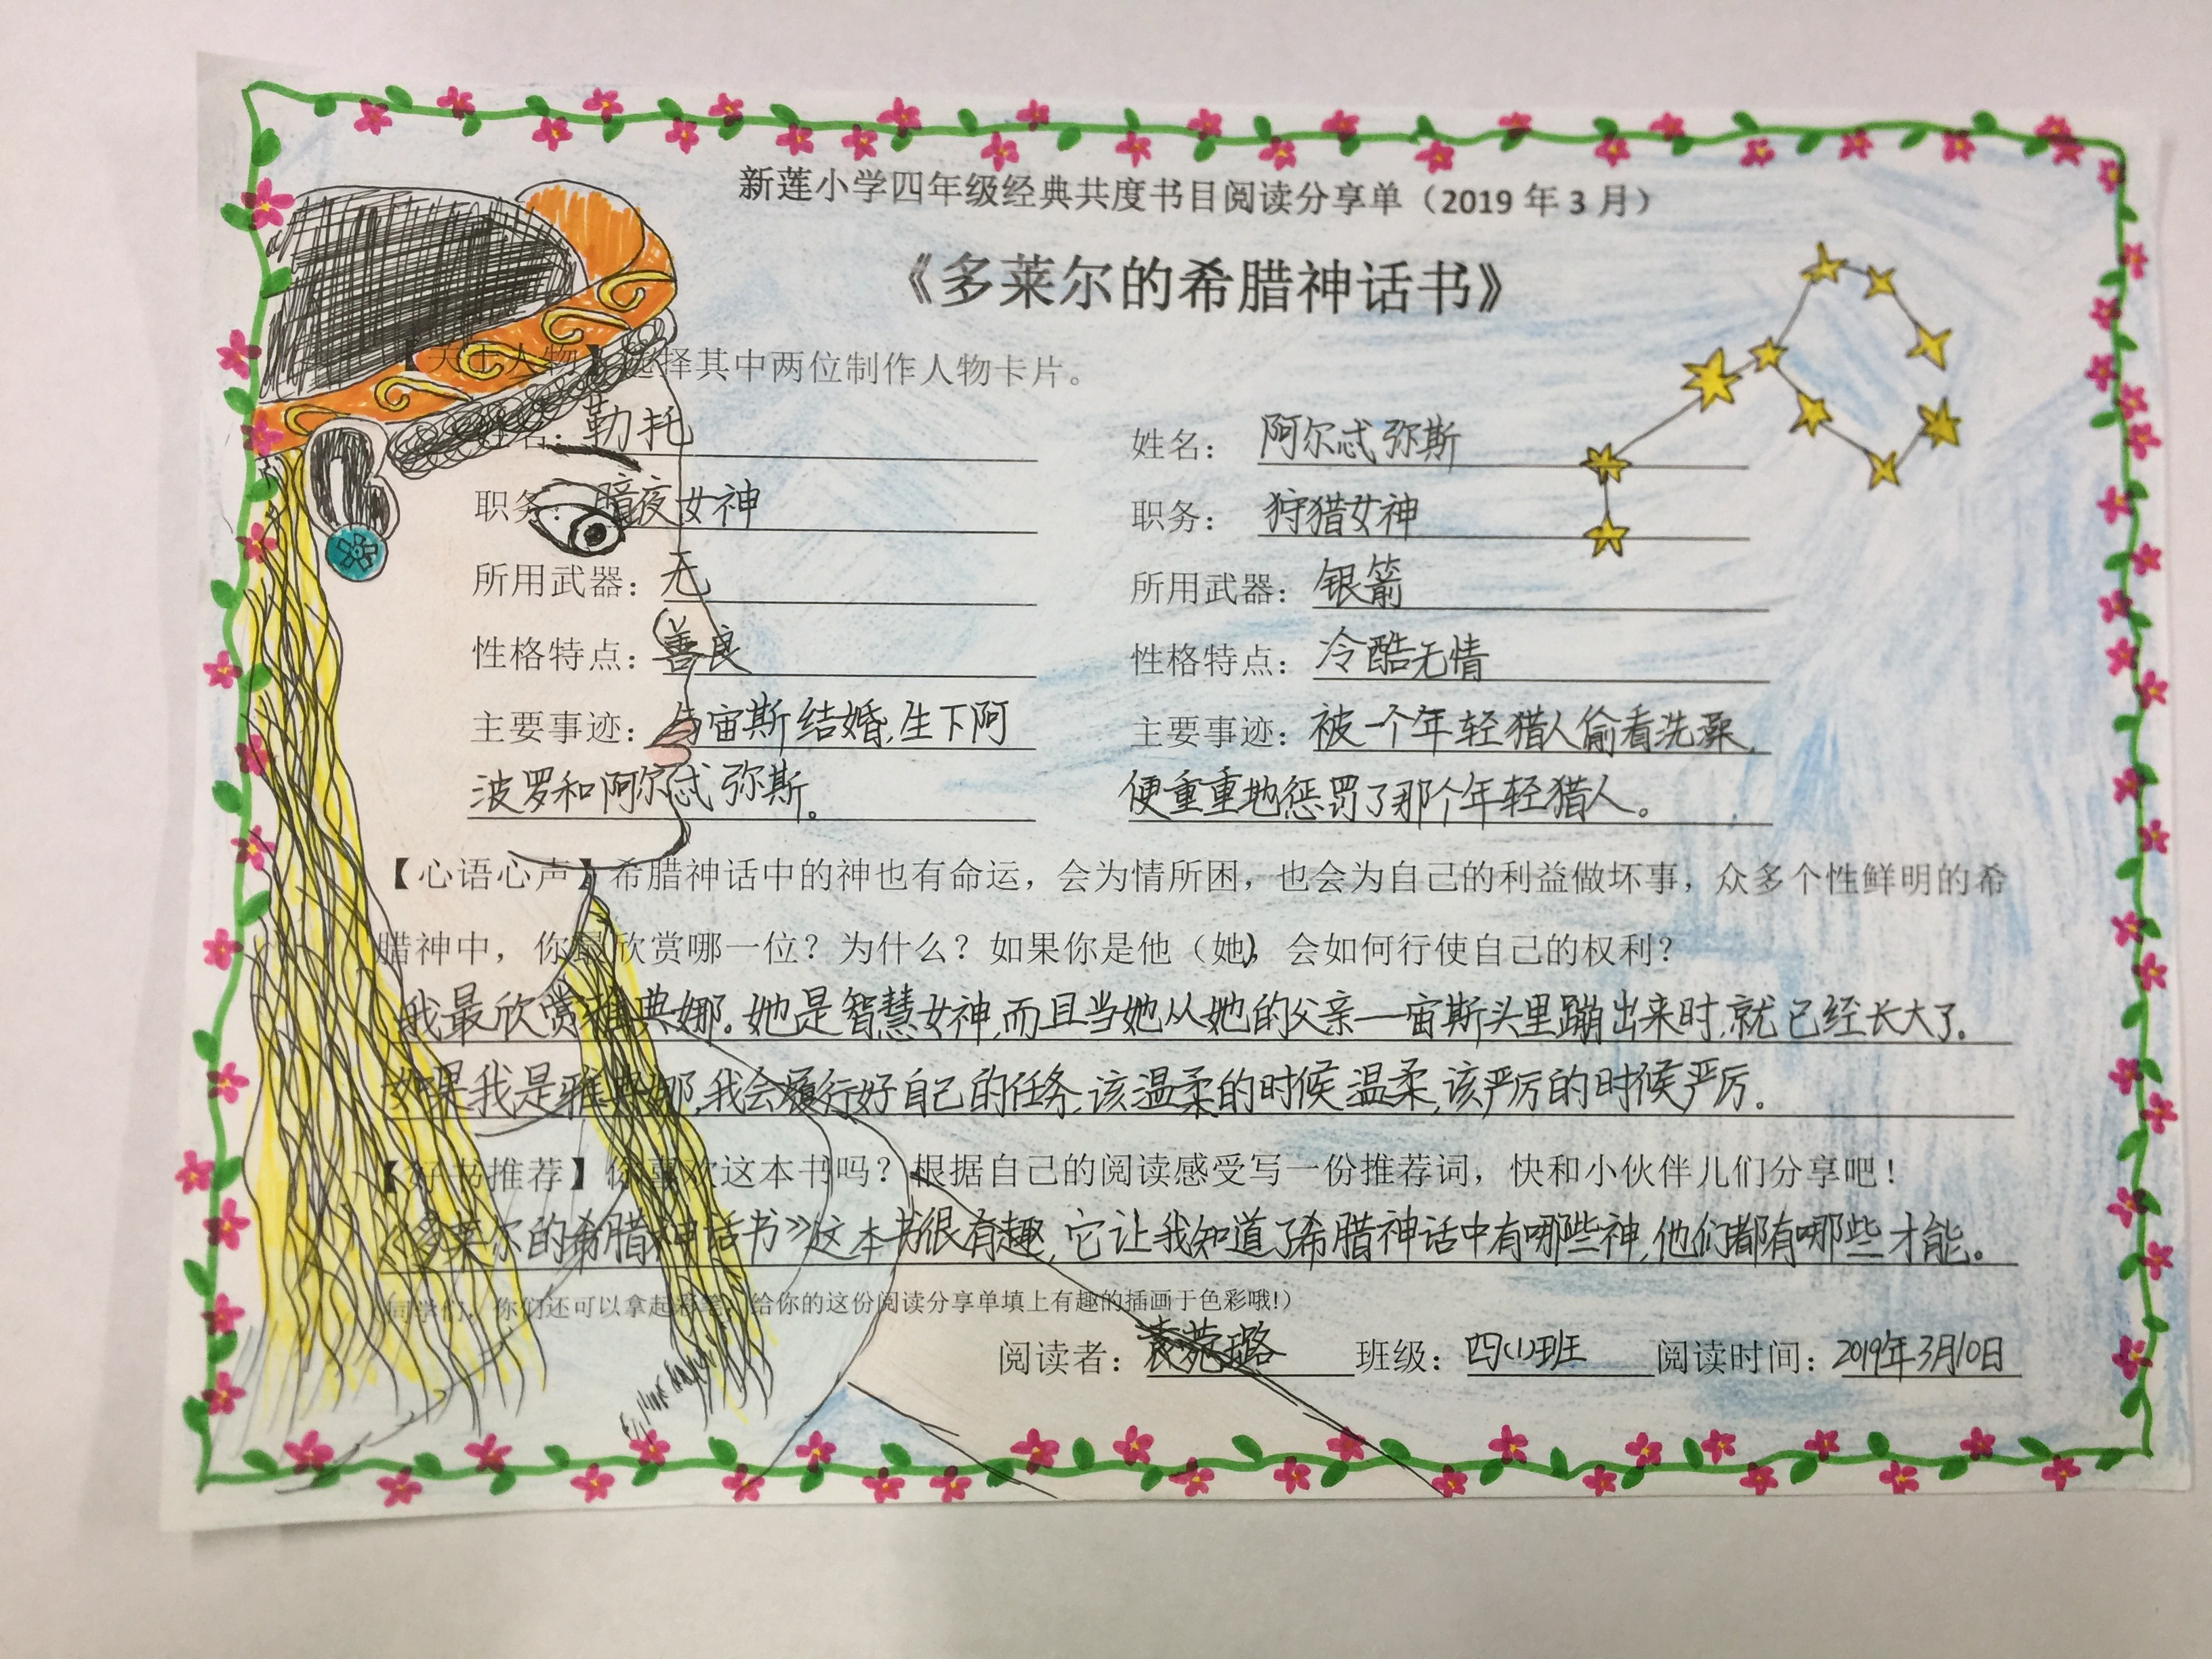 新莲小学四年级经典共度书目阅读分享单（2019 年 3 月）
《多莱尔的希腊神话书》
人物】选择其中两位制作人物卡片。
姓名：勒托
姓名：阿尔忒弥斯
职务：暗夜女神
职务：狩猎女神
所用武器：无
所用武器：银箭
性格特点：善良
性格特点：冷酷无情
主要事迹：与宙斯结婚,生下阿
波罗和阿尔忒弥斯。
主要事迹：被一个年轻猎人偷看洗澡,
便重重地惩罚了那个年轻猎人。
【心语心声】希腊神话中的神也有命运，会为情所困，也会为自己的利益做坏事，众多个性鲜明的希
腊神中，你最欣赏哪一位？为什么？如果你是他（她），会如何行使自己的权利？
我最欣赏雅典娜。她是智慧女神,而且当她从她的父亲—宙斯头里蹦出来时,就已经长大了.
如果我是雅典娜,我会履行好自己的任务,该温柔的时候温柔,该严厉的时候严厉。
【好书推荐】你喜欢这本书吗？根据自己的阅读感受写一份推荐词，快和小伙伴儿们分享吧！
《多莱尔的希腊神话书》这本书很有趣,它让我知道了希腊神话中有哪些神,他们都有哪些才能。
（同学们，你们还可以拿起彩笔，给你的这份阅读分享单填上有趣的插画于色彩哦!）
阅读者：袁苑璐 班级：四(1)班 阅读时间：2019年3月10日